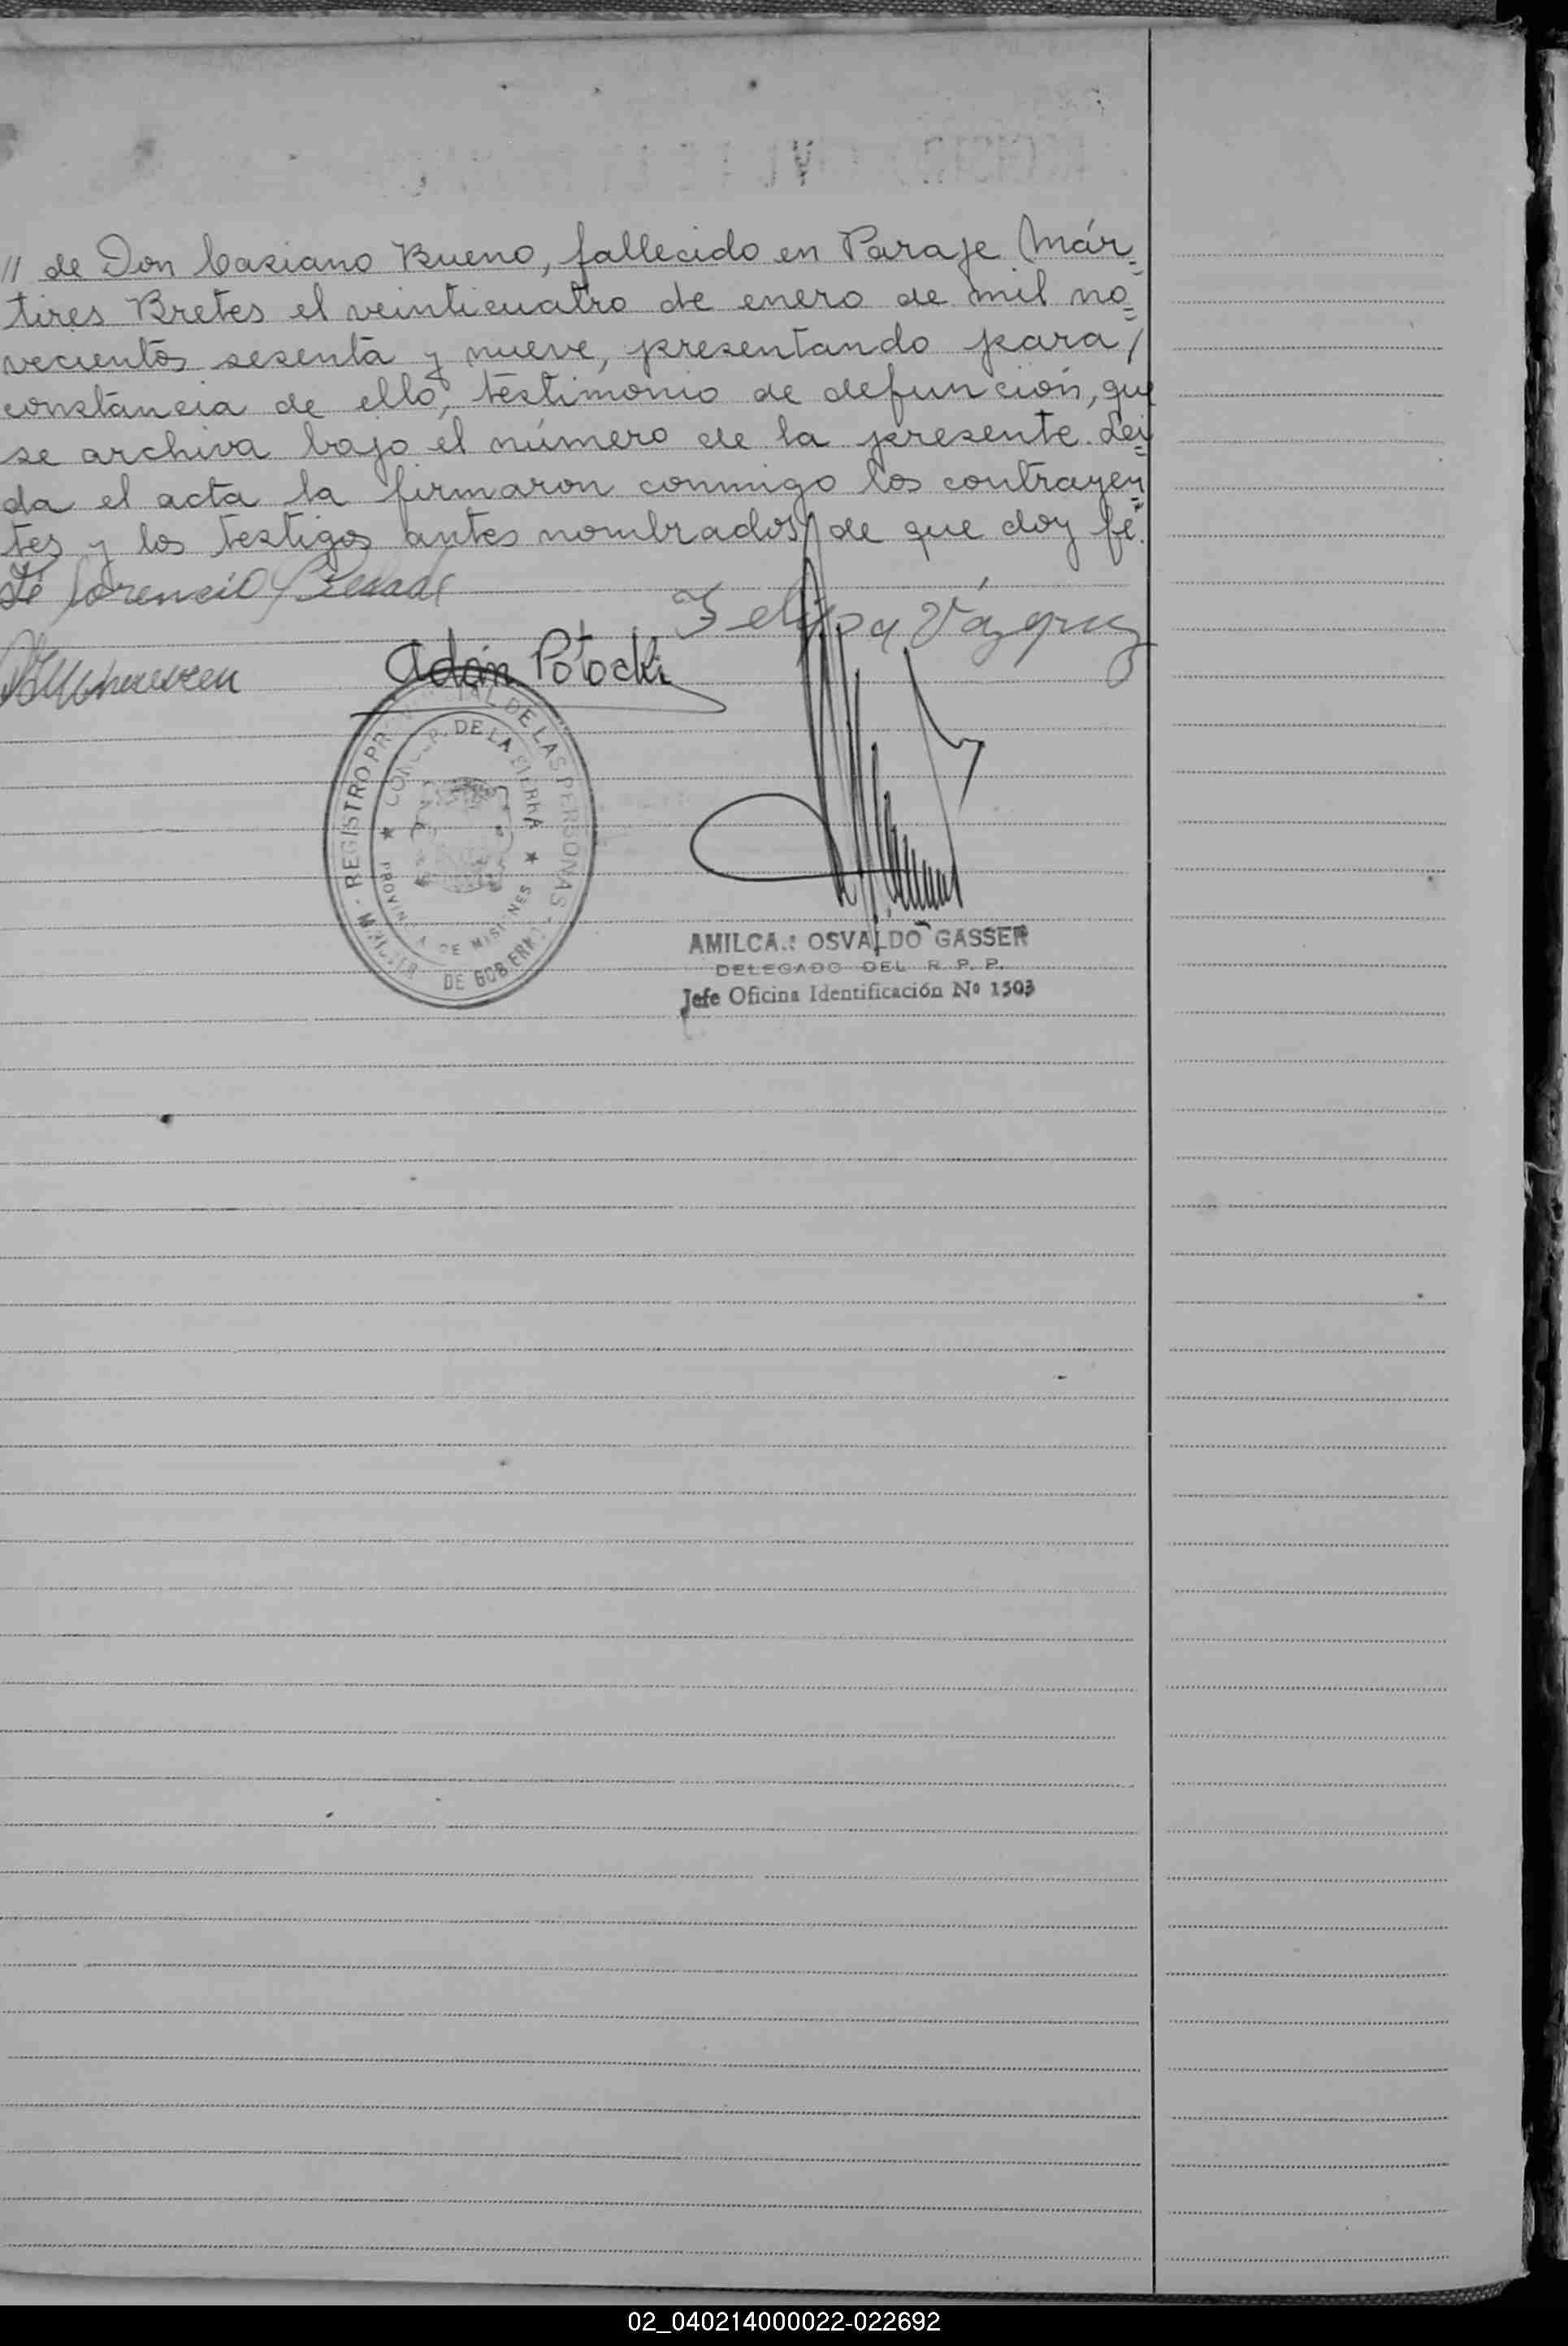 // de Don Casiano Bueno, fallecido en Paraje Már=
tires Bretes el veinticuatro de enero de mil no=
vecientos sesenta y nueve, presentando para/
constancia de ello, testimonio de defunción, que
se archiva bajo el número de la presente. Leí=
da el acta la firmaron conmigo los contrayen=
tes y los testigos antes nombrados, de que doy fé.
Felipa Vázquez
Adán Potocki
REGISTRO PROVINCIAL DE LAS PERSONAS
CONCEP. DE LA SIERRA
PROVINCIA DE MISIONES
DE GOBIERNO
AMILCAR OSVALDO GASSER
DELEGADO DEL R. P. P.
Jefe Oficina Identificación Nº 1503
02_040214000022-022692